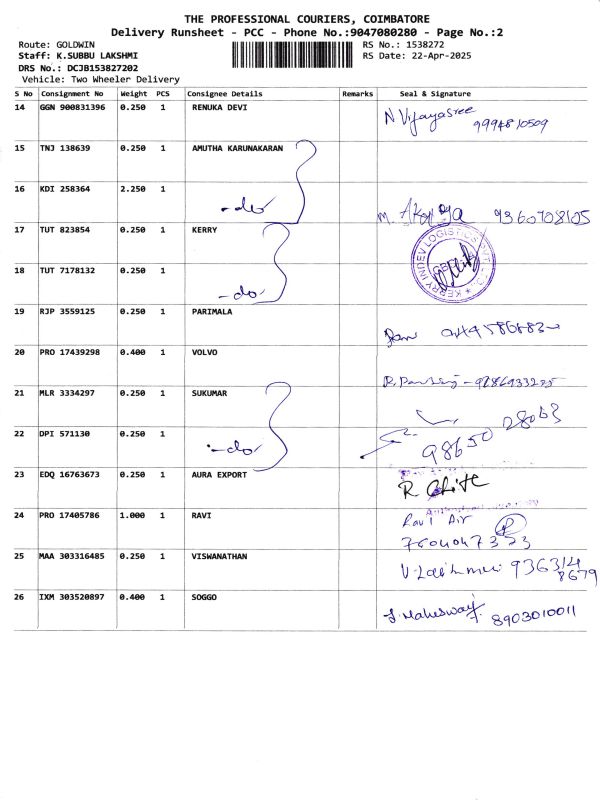 THE PROFESSIONAL COURIERS, COIMBATORE
Delivery Runsheet - PCC - Phone No.:9047080280 - Page No.:2
Route: GOLDWIN RS No.: 1538272
Staff: K.SUBBU LAKSHMI RS Date: 22-Apr-2025
DRS No.: DCJB153827202
Vehicle: Two Wheeler Delivery
S No Consignment No Weight PCS Consignee Details Remarks Seal & Signature
14 GGN 900831396 0.250 1 RENUKA DEVI N Vijayasree
9994810509
15 TNJ 138639 0.250 1 AMUTHA KARUNAKARAN
16 KDI 258364 2.250 1 -do- M. 9360708105
17 TUT 823854 0.250 1 KERRY KERRY INDEV LOGISTICS PVT LTD
18 TUT 7178132 0.250 1 -do-
19 RJP 3559125 0.250 1 PARIMALA
20 PRO 17439298 0.400 1 VOLVO
21 MLR 3334297 0.250 1 SUKUMAR
22 DPI 571130 0.250 1 -do- 98650 28063
23 EDQ 16763673 0.250 1 AURA EXPORT R
24 PRO 17405786 1.000 1 RAVI Ravi Air
7604047323
25 MAA 303316485 0.250 1 VISWANATHAN V. Lakshmi 936314
8679
26 IXM 303520897 0.400 1 SOGGO J. Maheswari 8903010011